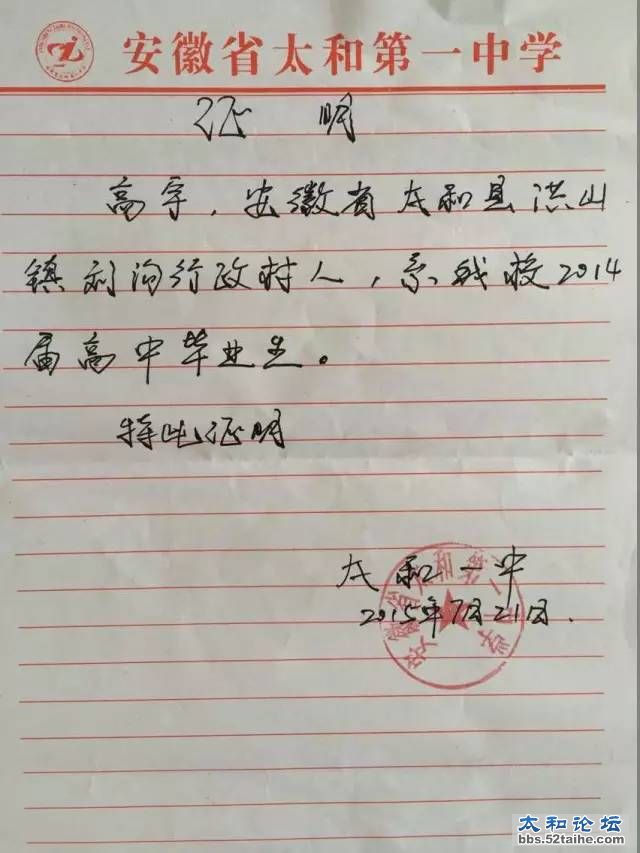 安徽省太和第一中学
证明
高宇，安徽省太和县洪山
镇刘沟行政村人，系我校2014
届高中毕业生。
特此证明
太和一中
2015年7月21日.
安徽省太和第一中学
太和论坛
bbs.52taihe.com